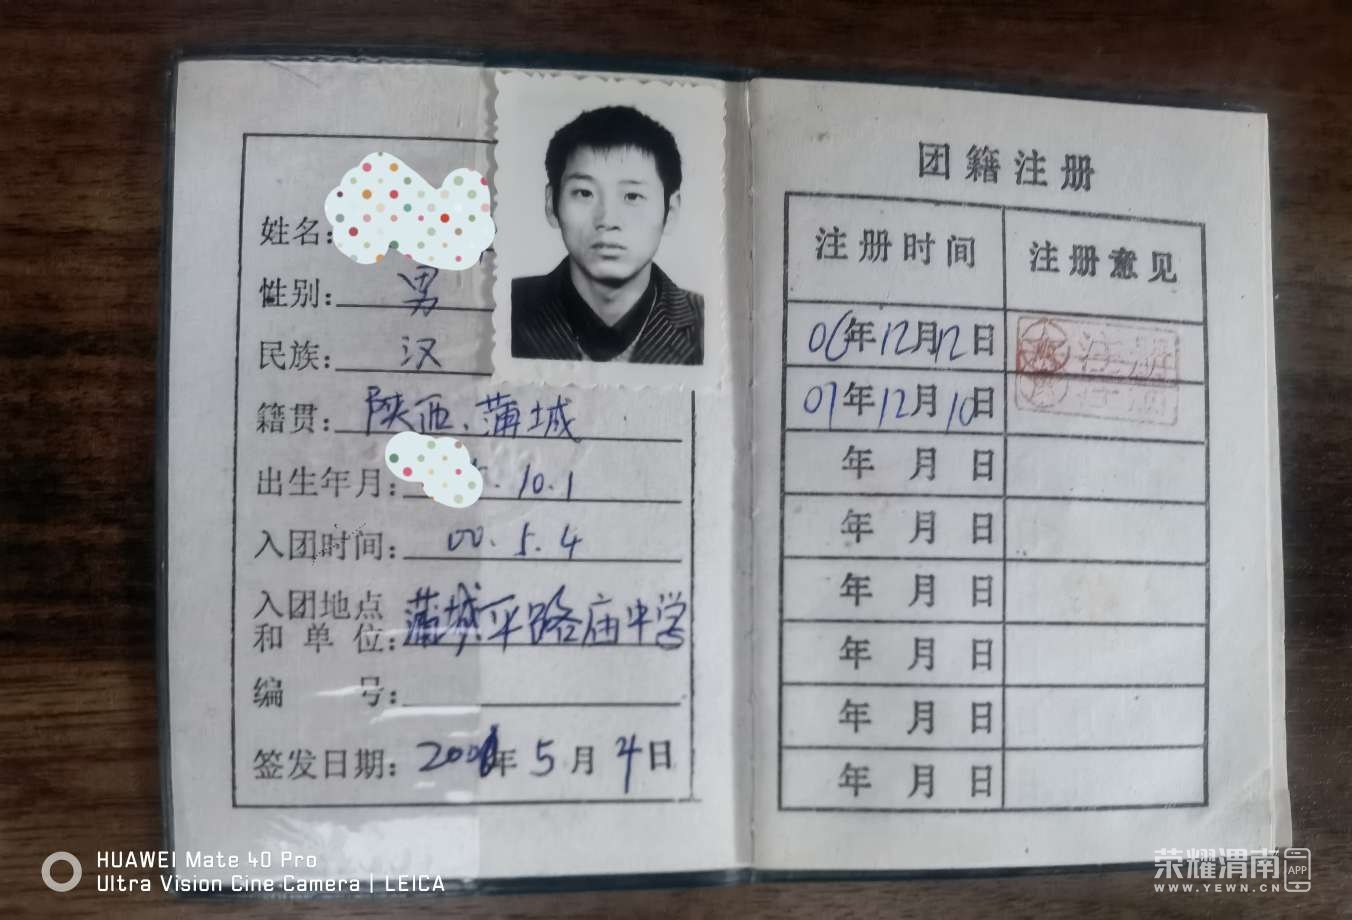 姓名:
性别: 男
民族: 汉
籍贯: 陕西、蒲城
出生年月: 10.1
入团时间: 00.5.4
入团地点
和单位: 蒲城平路庙中学
编号:
签发日期: 2001年5月4日
团籍注册
注册时间 注册意见
06年12月12日 注册
07年12月10日 注册
年 月 日
年 月 日
年 月 日
年 月 日
年 月 日
年 月 日
HUAWEI Mate 40 Pro
Ultra Vision Cine Camera | LEICA
荣耀渭南 APP
WWW.YEWN.CN